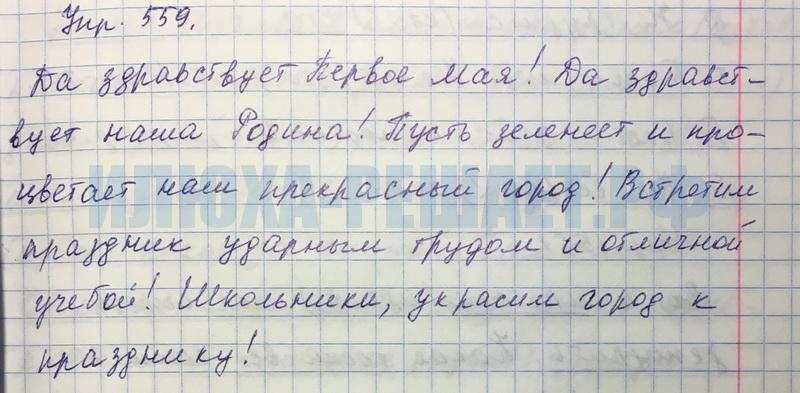 Упр. 559.
Да здравствует Первое Мая! Да здравст-
вует наша Родина! Пусть зеленеет и про-
цветает наш прекрасный город! Встретим
ИЛЮХА-РЕШАЕТ.РФ
праздник ударным трудом и отличной
учебой! Школьники, украсим город к
празднику!